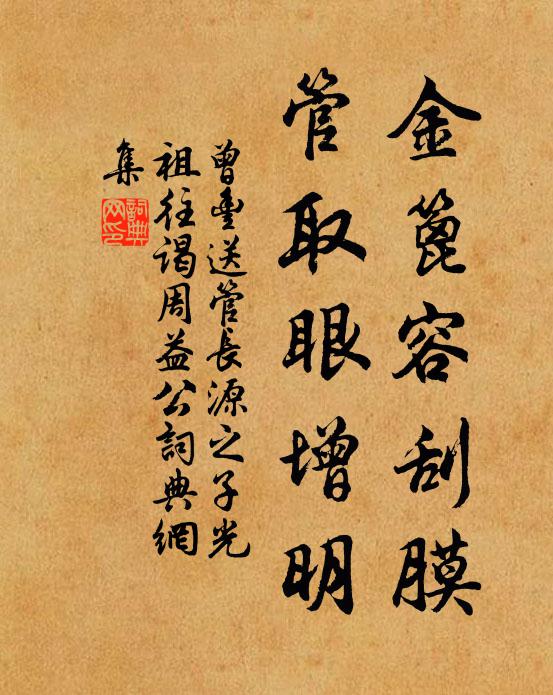 金篦容刮膜
管取眼增明
曾豊送管長源之子光
祖往謁周益公詞典網
集
詞典
网印